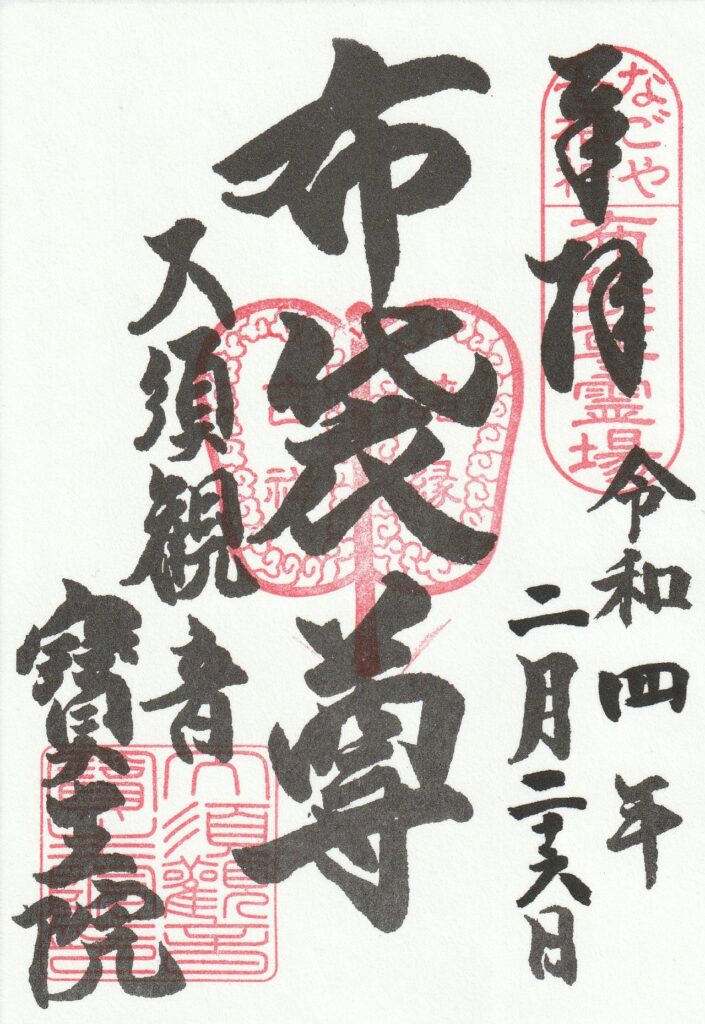 なごや
七福神
布袋尊霊場
奉拝
令和四年
二月二十六日
布袋尊
大須観音
寶生院
大須觀音